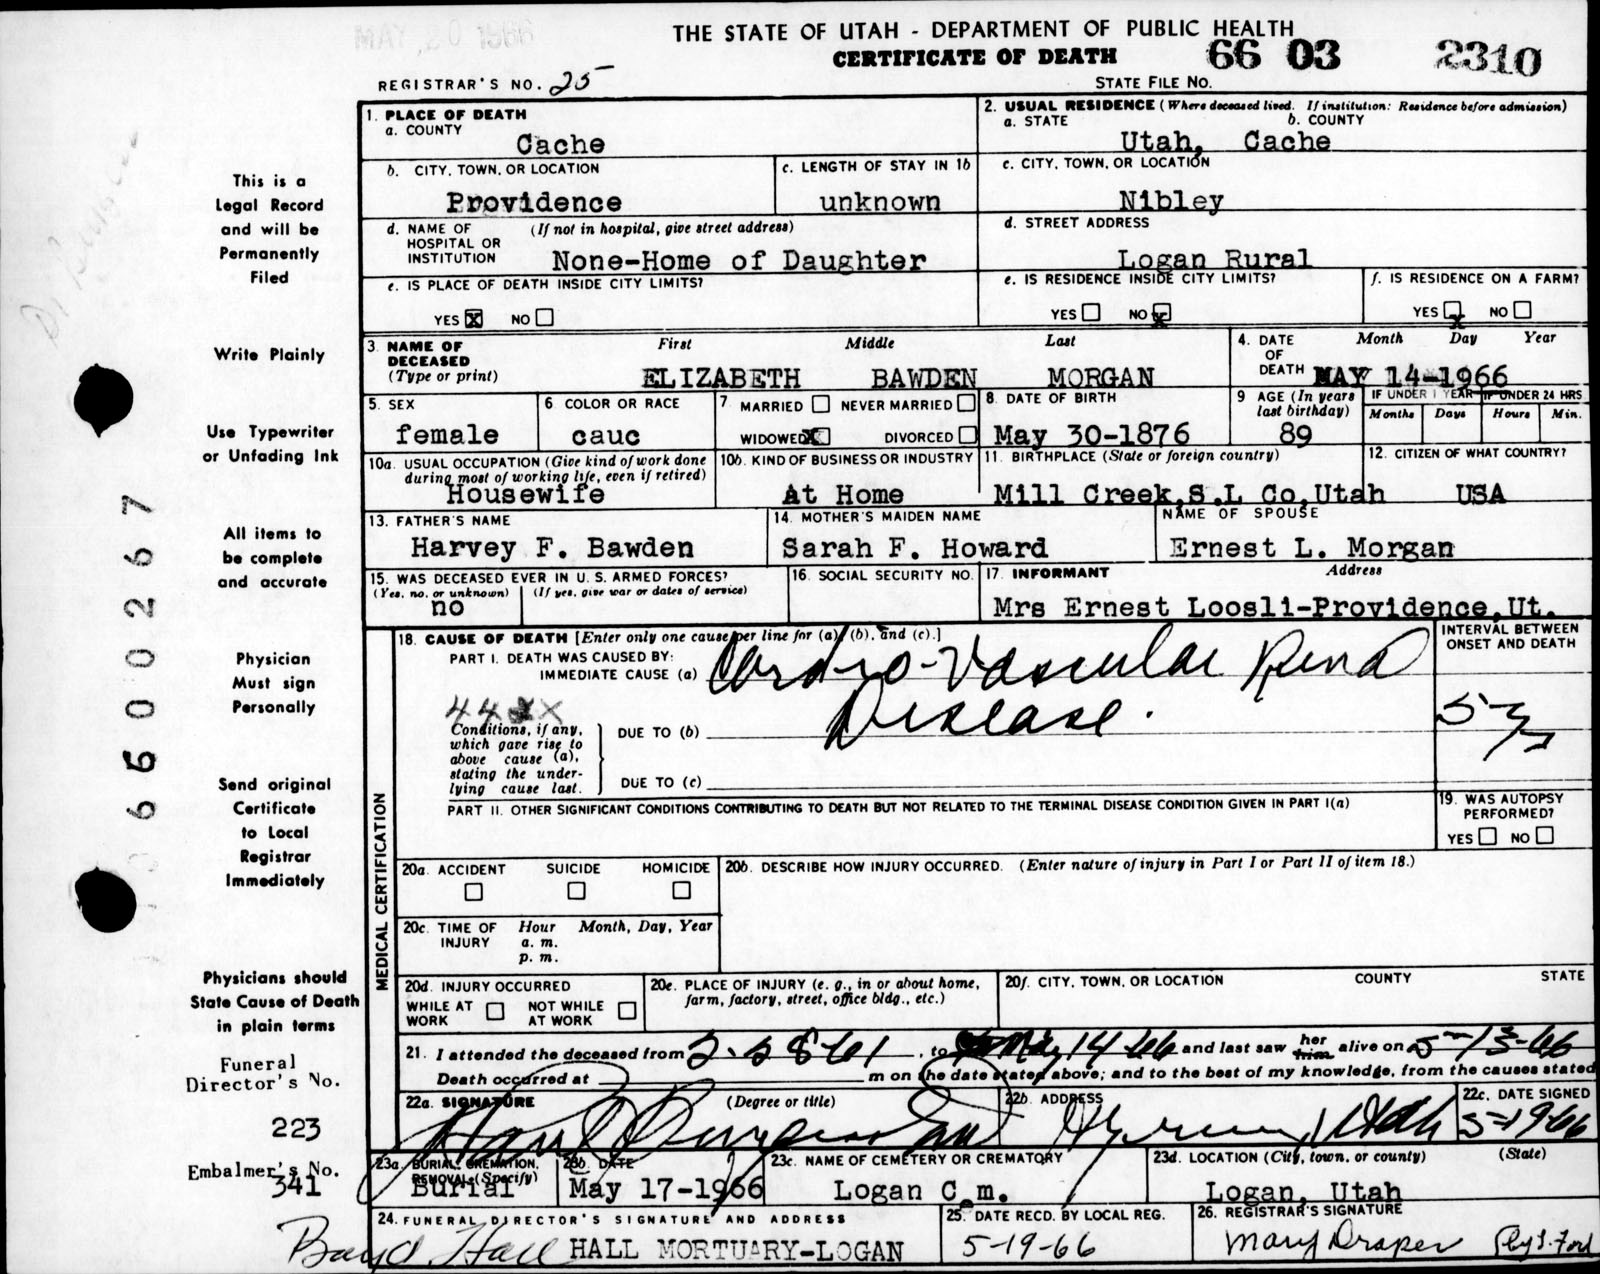 MAY 20 1966
THE STATE OF UTAH - DEPARTMENT OF PUBLIC HEALTH
CERTIFICATE OF DEATH 66 03 2310
REGISTRAR'S NO. 25 STATE FILE NO.
1. PLACE OF DEATH
a. COUNTY
Cache
2. USUAL RESIDENCE (Where deceased lived. If institution: Residence before admission)
a. STATE b. COUNTY
Utah, Cache
b. CITY, TOWN, OR LOCATION
Providence
c. LENGTH OF STAY IN 1b
unknown
c. CITY, TOWN, OR LOCATION
Nibley
d. NAME OF HOSPITAL OR INSTITUTION (If not in hospital, give street address)
None-Home of Daughter
d. STREET ADDRESS
Logan Rural
e. IS PLACE OF DEATH INSIDE CITY LIMITS?
YES X NO
e. IS RESIDENCE INSIDE CITY LIMITS?
YES NO X
f. IS RESIDENCE ON A FARM?
YES X NO
3. NAME OF DECEASED (Type or print)
First Middle Last
ELIZABETH BAWDEN MORGAN
4. DATE OF DEATH Month Day Year
MAY 14-1966
5. SEX
female
6 COLOR OR RACE
cauc
7 MARRIED NEVER MARRIED
WIDOWED X DIVORCED
8. DATE OF BIRTH
May 30-1876
9 AGE (In years last birthday)
89
IF UNDER 1 YEAR IF UNDER 24 HRS
Months Days Hours Min.
10a. USUAL OCCUPATION (Give kind of work done during most of working life, even if retired)
Housewife
10b. KIND OF BUSINESS OR INDUSTRY
At Home
11. BIRTHPLACE (State or foreign country)
Mill Creek,S.L Co,Utah
12. CITIZEN OF WHAT COUNTRY?
USA
13. FATHER'S NAME
Harvey F. Bawden
14. MOTHER'S MAIDEN NAME
Sarah F. Howard
NAME OF SPOUSE
Ernest L. Morgan
15. WAS DECEASED EVER IN U. S. ARMED FORCES?
(Yes, no, or unknown) (If yes, give war or dates of service)
no
16. SOCIAL SECURITY NO.
17. INFORMANT Address
Mrs Ernest Loosli-Providence,Ut.
MEDICAL CERTIFICATION
18. CAUSE OF DEATH [Enter only one cause per line for (a), (b), and (c).]
INTERVAL BETWEEN ONSET AND DEATH
PART I. DEATH WAS CAUSED BY:
IMMEDIATE CAUSE (a) Cardio-Vascular Renal
Disease.
Conditions, if any, which gave rise to above cause (a), stating the under-lying cause last.
DUE TO (b)
DUE TO (c)
PART II. OTHER SIGNIFICANT CONDITIONS CONTRIBUTING TO DEATH BUT NOT RELATED TO THE TERMINAL DISEASE CONDITION GIVEN IN PART I(a)
19. WAS AUTOPSY PERFORMED?
YES NO
20a. ACCIDENT SUICIDE HOMICIDE
20b. DESCRIBE HOW INJURY OCCURRED. (Enter nature of injury in Part I or Part II of item 18.)
20c. TIME OF INJURY Hour Month, Day, Year
a. m.
p. m.
20d. INJURY OCCURRED
WHILE AT WORK NOT WHILE AT WORK
20e. PLACE OF INJURY (e. g., in or about home, farm, factory, street, office bldg., etc.)
20f. CITY, TOWN, OR LOCATION COUNTY STATE
21. I attended the deceased from 2-28-61, to May 14-66 and last saw her him alive on 5-13-66
Death occurred at m on the date stated above; and to the best of my knowledge, from the causes stated
22a. SIGNATURE (Degree or title)
22b. ADDRESS
Utah
22c. DATE SIGNED
5-19-66
23a. BURIAL, CREMATION, REMOVAL (Specify)
Burial
23b. DATE
May 17-1966
23c. NAME OF CEMETERY OR CREMATORY
Logan Cem.
23d. LOCATION (City, town, or county) (State)
Logan, Utah
24. FUNERAL DIRECTOR'S SIGNATURE AND ADDRESS
Boyd Hall HALL MORTUARY-LOGAN
25. DATE RECD. BY LOCAL REG.
5-19-66
26. REGISTRAR'S SIGNATURE
Mary Draper
This is a
Legal Record
and will be
Permanently
Filed
Write Plainly
Use Typewriter
or Unfading Ink
All items to
be complete
and accurate
Physician
Must sign
Personally
Send original
Certificate
to Local
Registrar
Immediately
Physicians should
State Cause of Death
in plain terms
Funeral
Director's No.
223
Embalmer's No.
341
6600267